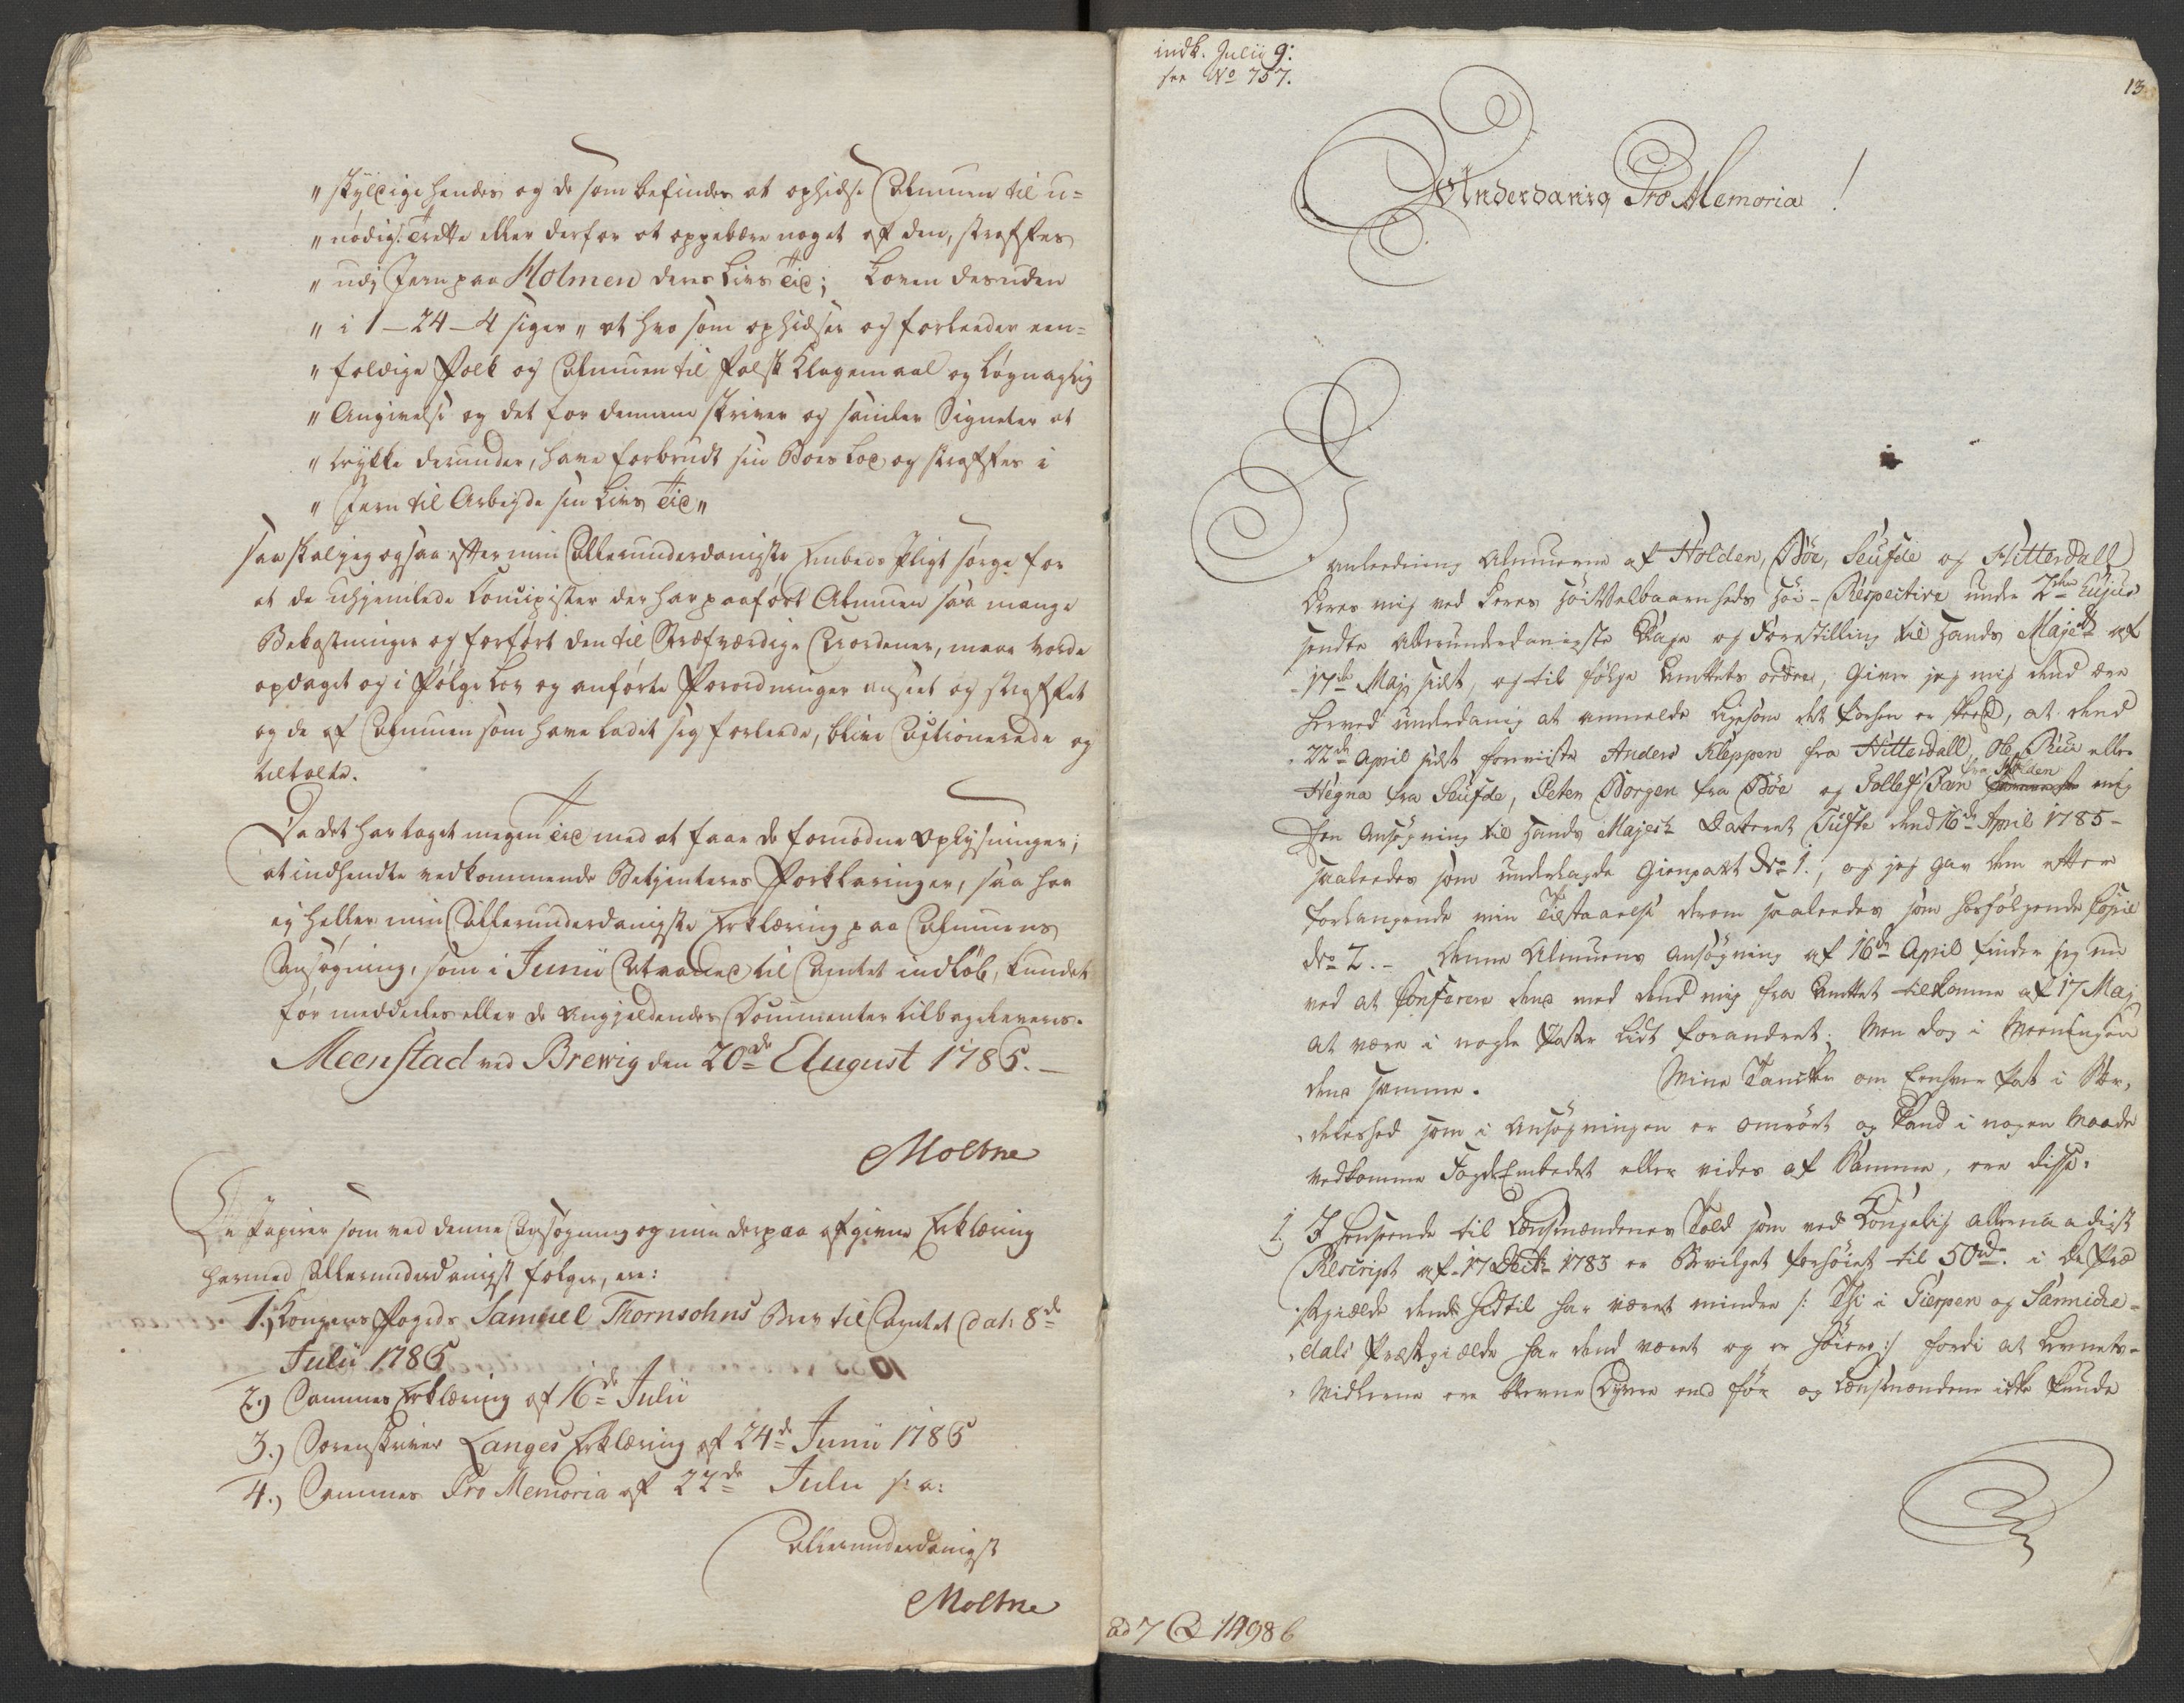 "skyldige hændes og de som befindes at ophidse Almuen til u=
"nødig: Trætte eller derfor at oppebære noget af den, straffes
"udj Jern paa Holmen deres Livs Tid; Loven desuden
"i 1–24–4 siger "at hvo som ophidser og forleeder een=
"foldige Folk og Almuen til falsk Klagemaal og løgnagtig
"Angivelse og det for dennem skriver og samler Signeter at
"trykke derunder, have forbrudt sin Boes Lod og straffes i
"Jern til Arbeyde sin Livs Tid"
saa skal jeg ogsaa efter min Allerunderdanigste Embeds Pligt sørge for
at de uhjemlede Concipister der har paaført Almuen saa mange
Bekostninger og forført den til Strafværdige Uordener, maae vorde
opdaget og i Følge Lov og anførte Forordninger anseet og straffet
og de af Almuen som have ladet sig forleede, blive Actionerede og
tiltalte.
Da det har taget megen Tid med at faae de fornødne Oplysninger,
at indhendte vedkommende Betjenteres Forklaringer, saa har
ey heller min Allerunderdanigste Erklæring paa Almuens
Ansøgning, som i Junii Maaned til Amtet indløb, kundet
før meddeeles eller de Angjeldendes Documenter tilbageleveres.
Meenstad ved Brewig den 20de August 1785.–
Moltke
De Papirer som ved denne Ansøgning og min derpaa afgivne Erklæring
hermed Allerunderdanigst følger, ere:
1.) Kongens Fogeds Samuel Thornsohns Brev til Amtet dat: 8de
Julii 1785
2.) Sammes Erklæring af 16de Julii
3.) Sorenskriver Langes Erklæring af 24de Junii 1785
4.) Sammes Pro Memoria af 22de Julii s: a:
Allerunderdanigst
Moltke
indk. Julii 9:
see No 757.
13
Underdanig Pro Memoria!
I
anleedning Almuerne af Holden, Bøe, Seufde og Hitterdall
deres mig ved Deres HøiVelbaarenheds høi-Respective under 2den hujus
sendte Allerunderdanigste Klage og Forestilling til Hands Majestt af
17de Maj sidst, og til følge Amtets ordre, giver jeg mig dend ære
herved underdanig at anmelde ligesom det forhen er skeed, at dend
22de April sidst foreviiste Anders Kleppen fra Hitterdall, Ole Riis eller
Hegna fra Seufde, Peter Borgen fra Bøe og Tollef Bøe fra Holden mig
Een Ansøgning til Hands Majestt Dateret Tufte dend 16de April 1785–
saaleedes som underlagde Gienpart No 1., og jeg gav dem efter
forlangende min Tilstaaelse derom saaleedes som hosfølgende Copie
No 2.– Denne Almuens Ansøgning af 16de April finder jeg nu
ved at Conferere dend med dend mig fra Amtet tilkomne af 17 Maj
at være i nogle Poster lidt forandret; Men dog i Meeningen
dend samme. Mine Tanker om Eenhver Post i Sær-
deleshed som i Ansøgningen er omrørt og kand i nogen Maade
vedkomme FogdeEmbedet eller vides af Samme, ere disse:
1. I Henseende til Lænsmændenes Told som ved Kongelig allernaadigst
Rescript af 17 Decbr 1783 er Bevilget forhøiet til 50rd. i de Præ
stegiælde dend hidtil har været mindre /: Thi i Gierpen og Sannidre-
dals Præstegiælde har dend været og er høiere:/ fordi at Levnets-
Midlerne ere blevne Dyrere end før og Lænsmændene ikke kunde
ad 7 Q 1498 b